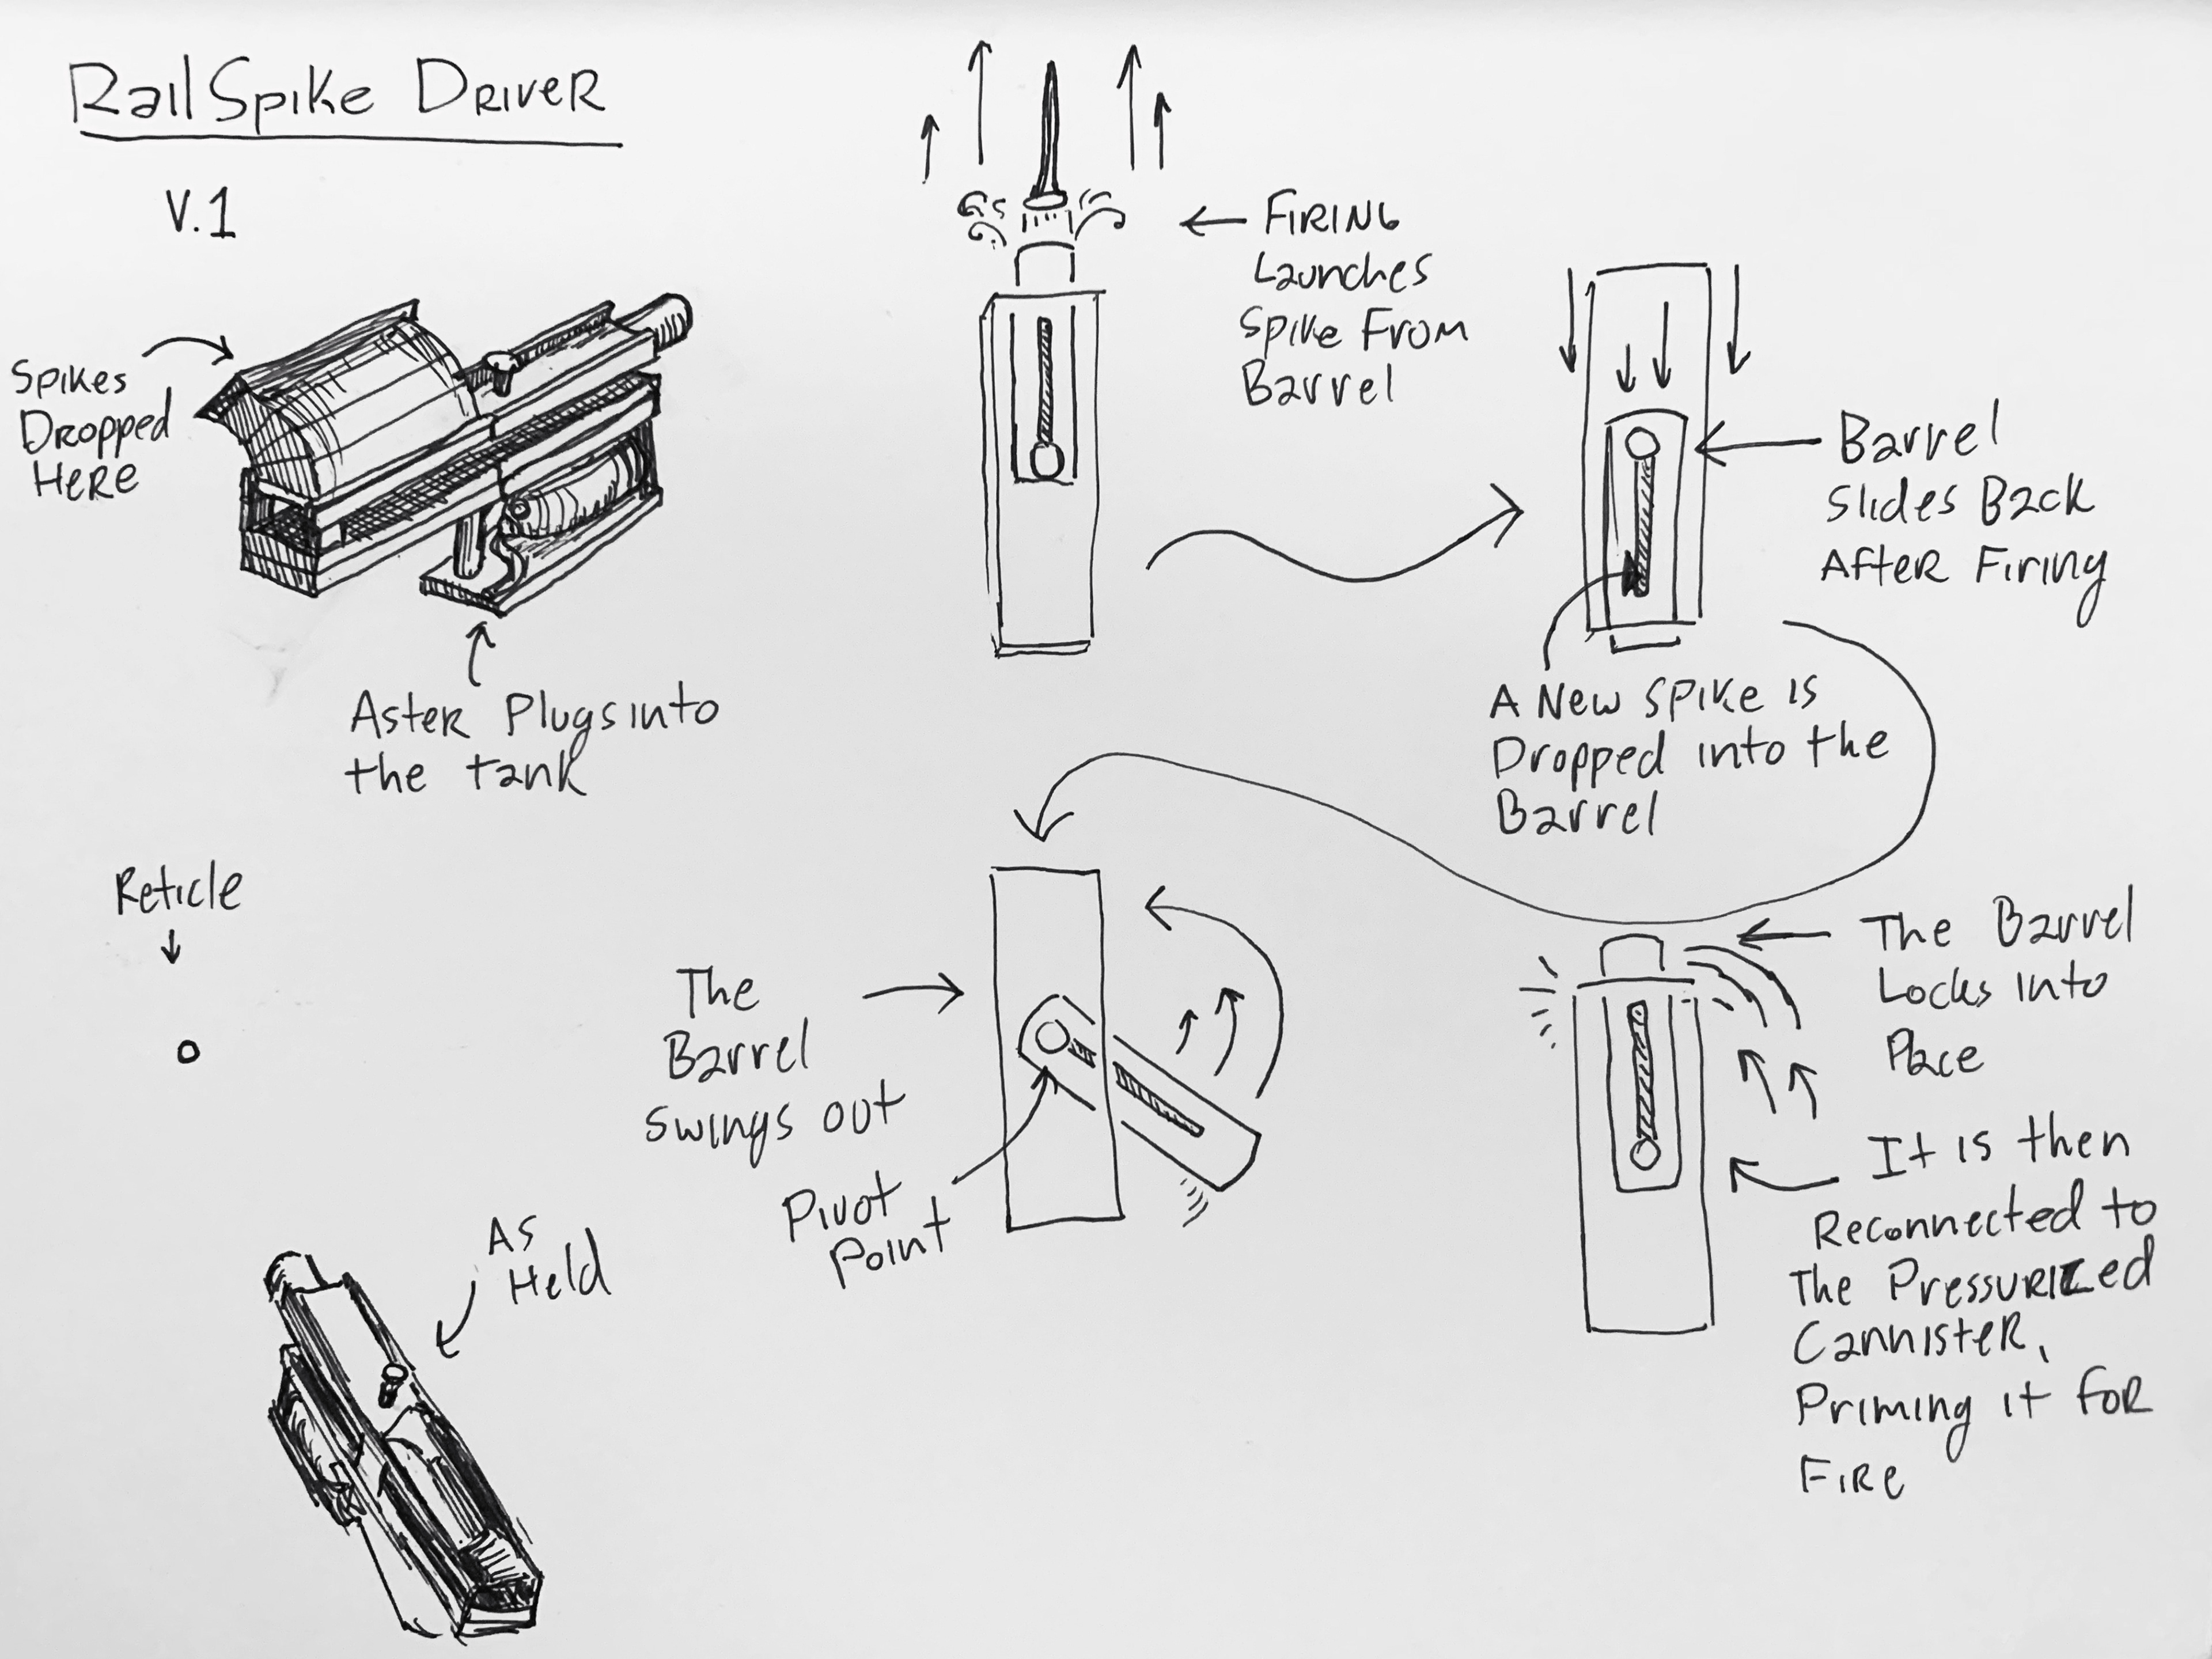 Rail Spike Driver
V.1
Spikes
Dropped
Here
Aster Plugs into
the tank
Firing
Launches
Spike From
Barrel
Barrel
Slides Back
After Firing
A New Spike is
Dropped into the
Barrel
Reticle
The
Barrel
swings out
Pivot
Point
The Barrel
Locks into
Place
It is then
Reconnected to
The Pressurized
Cannister,
Priming it for
Fire
As
Held